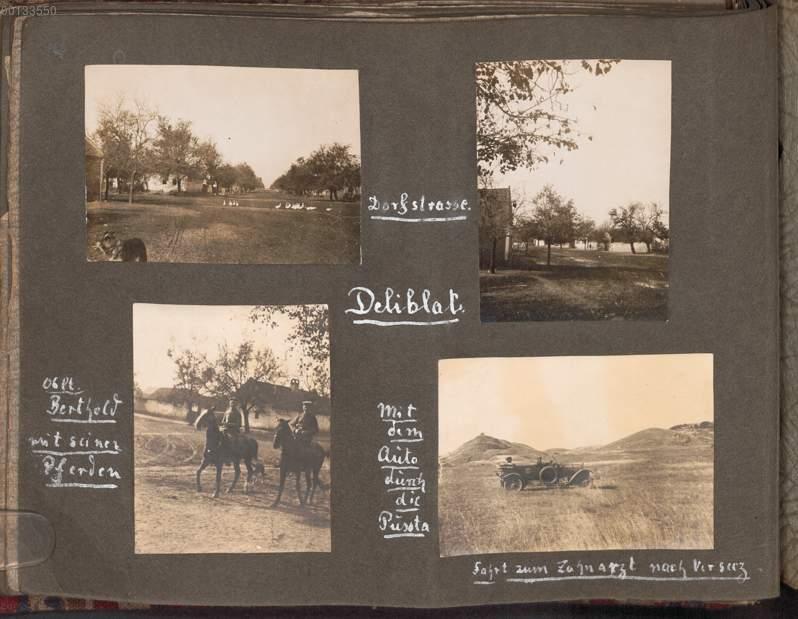 00133550
Dorfstrasse.
Deliblat.
Oblt.
Berthold
mit seinen
Pferden
Mit
dem
Auto
durch
die
Pussta
Fahrt zum Zahnarzt nach Versecz.